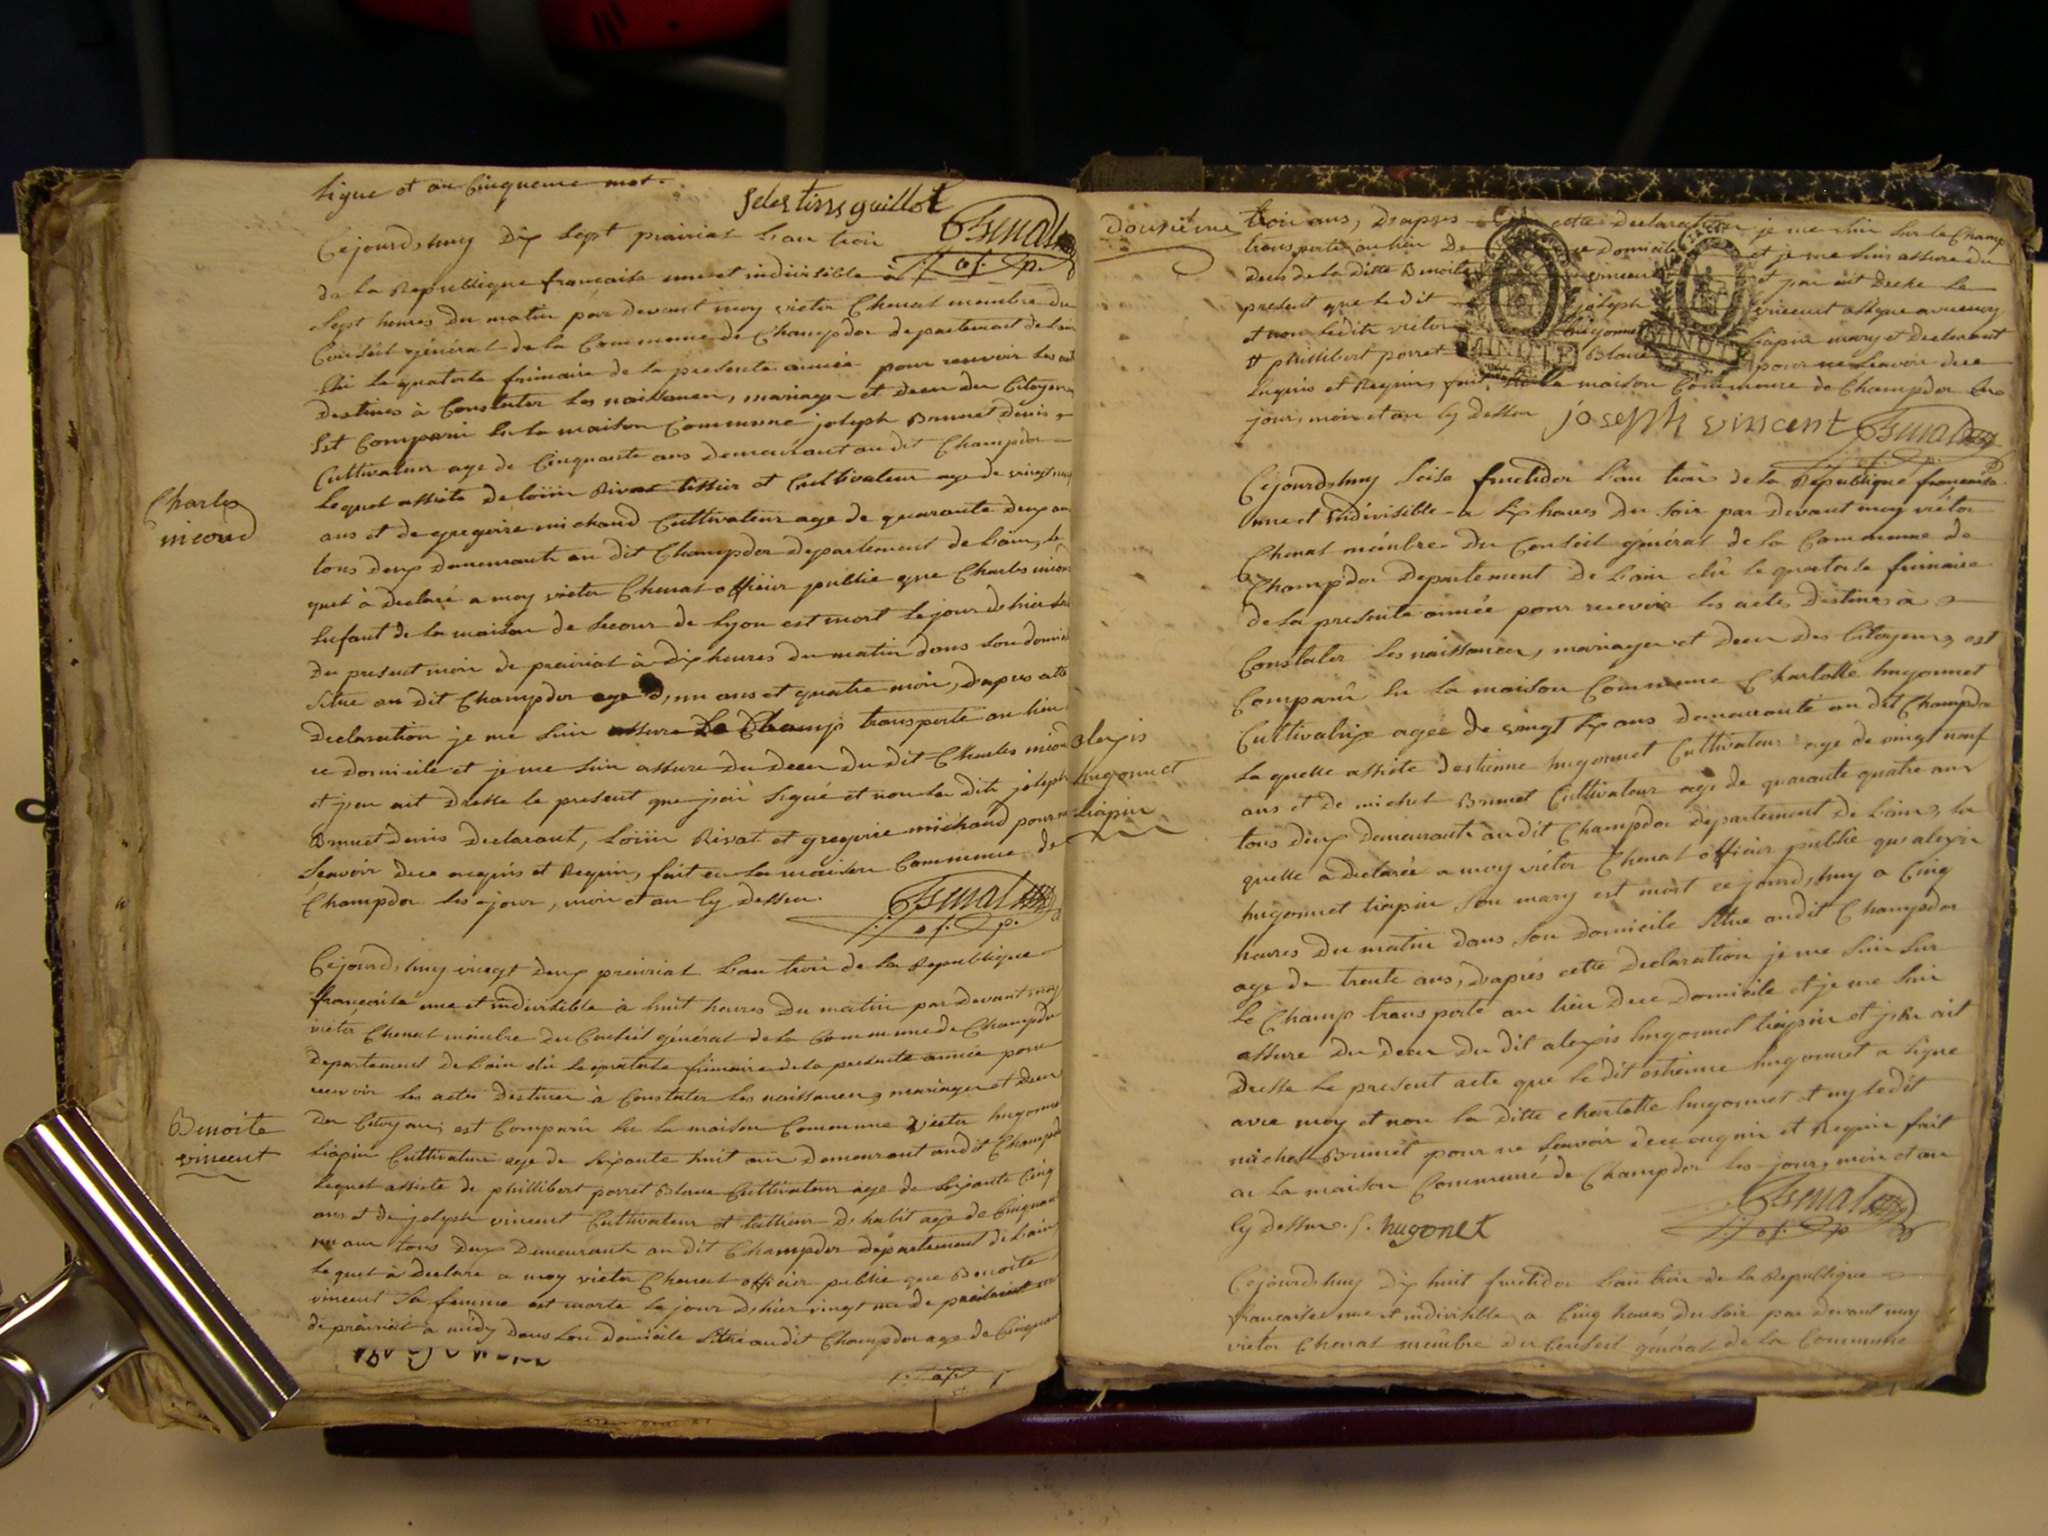 ligne et au Cinquieme mot.
sclestin guillot
Chenal
of. p.
Cejourdshuy Dix sept prairial L'an trois
de la Republique française une et indivisible à
sept heures du matin par devant moy victor Chenal membre du
Conseil général de la Commune de Champdor departement de L'ain
élû le quatorse frimaire de la presente année pour recevoir les actes
destinés à Constater les naissances, mariages et deces des Citoyens
Est Comparû en la maison Commune joseph Brunet denis
Cultivateur age de Cinquante ans demeurant au dit Champdor
Lequel assisté de loüis Rivat tissier et Cultivateur age de vingt neuf
ans et de gregoire michaud Cultivateur age de quarante deux ans
tous deux demeurants au dit Champdor departement de L'ain, le
quel à declaré a moy victor Chenal officier public que Charles
Enfant de la maison de secour de Lyon est mort le jour de hier
du present mois de prairial à dix heures du matin dans son domicile
situé au dit Champdor age d'un ans et quatre mois, d'apres cette
declaration je me suis assure Le Champ transporté au lieu
ce domicile et je me suis assure du deces du dit Charles
et j'en ait dressé le present que j'ai signé et non les dits joseph
Brunet denis declarant, loüis Rivat et gregoire michaud pour ne
sçavoir dece enquis et Requis, fait en la maison Commune de
Champdor les jour, mois et an cy dessus.
Chenal
of. p.
Charles
Cejourdshuy vingt deux prairial L'an trois de la Republique
française une et indivisible à huit heures du matin par devant moy
victor Chenal membre du Conseil général de la Commune de Champdor
departement de L'ain élû le quatorse frimaire de la presente année pour
recevoir les actes destinés à Constater les naissances, mariages et deces
des Citoyens est Comparû en la maison Commune victor hugonnet
Liapin Cultivateur age de soixante huit ans demeurant audit Champdor
Lequel assisté de phillibert porret Blanc Cultivateur age de soixante Cinq
ans et de joseph vincent Cultivateur et tailleur d'habit age de Cinquante
un ans tous deux demeurants au dit Champdor departement de L'ain
Lequel à declaré a moy victor Chenal officier public que Benoite
vincent sa femme est morte le jour dshier vingt un de
de prairial a midy dans son domicile situé audit Champdor age de Cinquante
Benoite
vincent
Dousieme
trois ans, D'apres cette declaration je me suis sur le Champ
transporté au lieu de ce domicile et je me suis assure du
deces de la ditte Benoite vincent et j'en ait dressé le
present que le dit joseph vincent a signe avec moy
et non ledits victor hugonnet liapin mary et declarant
et phillibert porret Blanc pour ne sçavoir dece
enquis et Requis, fait en la maison Commune de Champdor les
jour, mois et an cy dessus
joseph vincent
Chenal
MINUTE
MINUTE
Cejourdshuy seise fructidor L'an trois de la Republique française
une et indivisible a six heures du soir par devant moy victor
Chenal membre du Conseil général de la Commune de
Champdor departement de L'ain élû le quatorse frimaire
de la presente année pour recevoir les actes destinés à
Constater les naissances, mariages et deces des Citoyens, est
Comparû en la maison Commune Charlotte hugonnet
Cultivatrixe agée de vingt six ans demeurante au dit Champdor
la quelle assisté d'estienne hugonnet Cultivateur age de vingt neuf
ans et de michel Brunet Cultivateur age de quarante quatre ans
tous deux demeurants audit Champdor departement de L'ain, la
quelle a declaré a moy victor Chenal officier public qu'alexis
hugonnet liapin son mary est mort cejourdshuy a Cinq
heures du matin dans son domicile situé audit Champdor
age de trente ans, d'apres cette declaration je me suis sur
le Champ transporté au lieu dece domicile et je me suis
assure du deces du dit alexis hugonnet liapin et j'en ait
dressé le present acte que le dit estienne hugonnet a signe
avec moy et non la ditte charlotte hugonnet et ny ledit
michel Brunet pour ne sçavoir dece enquis et Requis fait
en la maison Commune de Champdor les jour, mois et an
cy dessus. hugonet
Chenal
of. p.
alexis
hugonnet
Liapin
Cejourdshuy dix huit fructidor L'an trois de la Republique
française une et indivisible, a Cinq heures du soir par devant moy
victor Chenal membre du Conseil général de la Commune